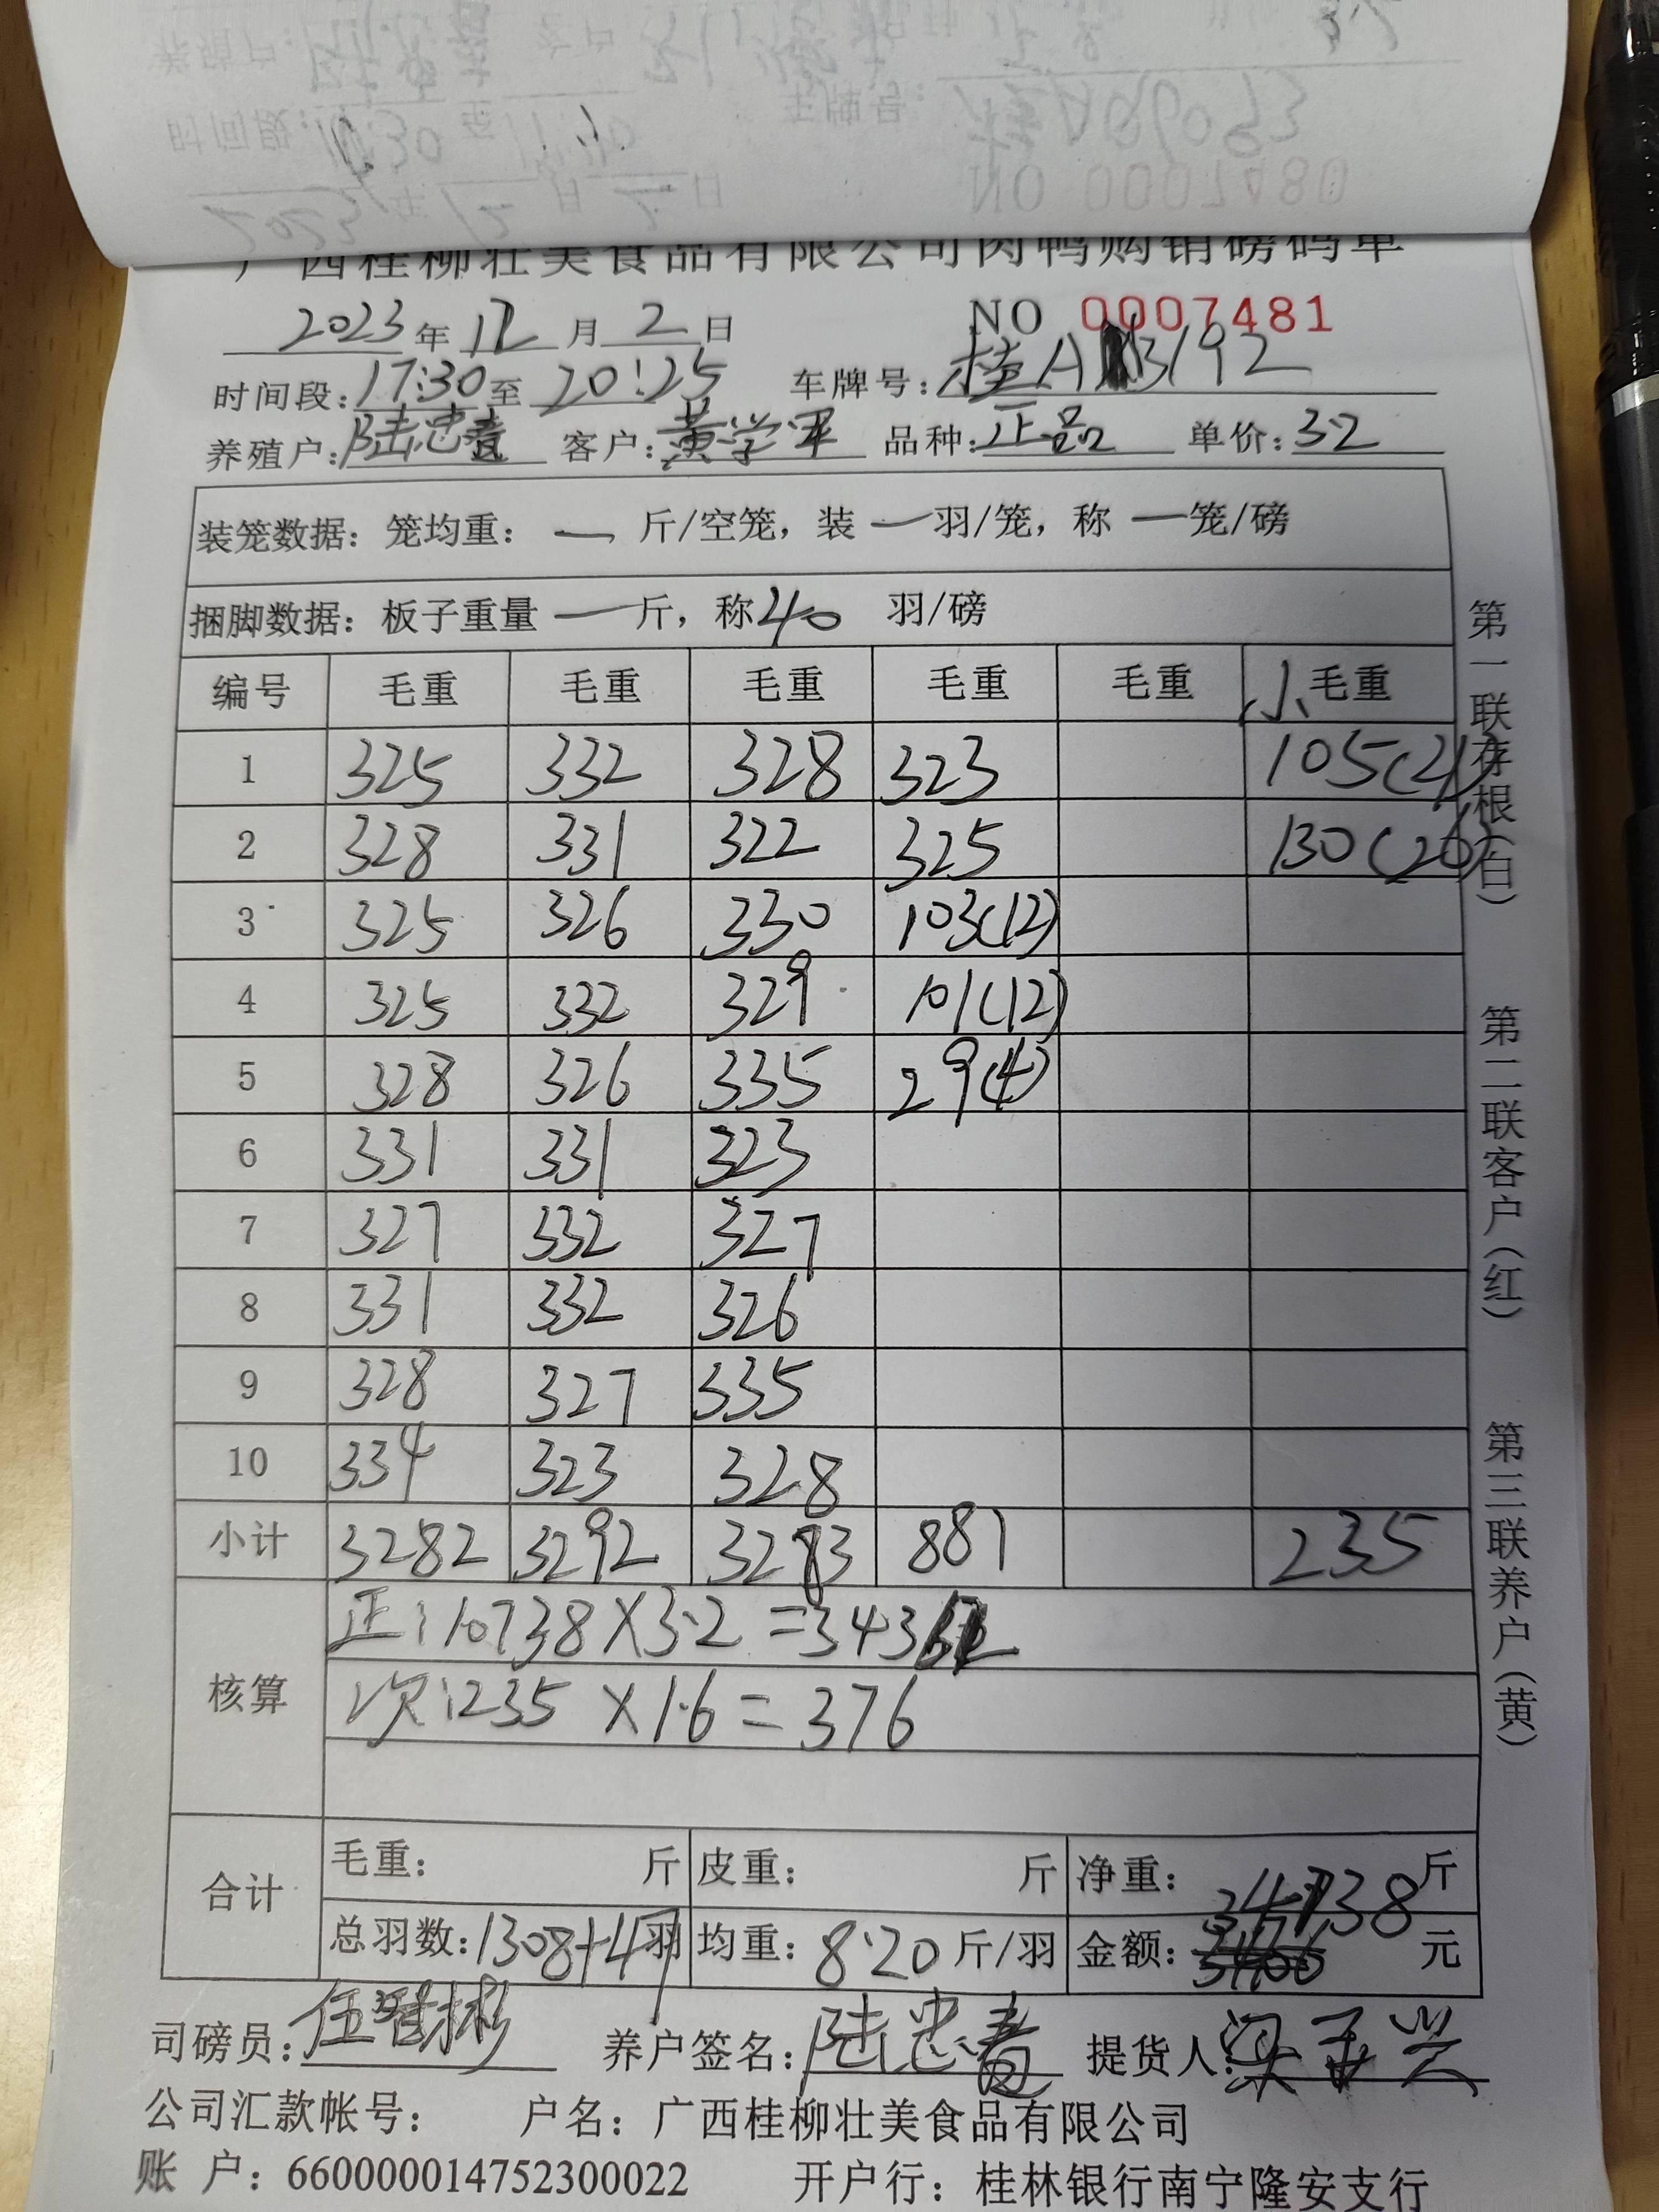 广西桂柳壮美食品有限公司肉鸭购销磅码单
2023年12月2日 NO 0007481
时间段:17:30至20:25 车牌号:桂A 3192
养殖户:陆忠 客户:黄学军 品种:正品 单价:3.2
装笼数据:笼均重: 一 斤/空笼,装 一 羽/笼,称 一 笼/磅
捆脚数据:板子重量 一 斤,称 40 羽/磅
编号 毛重 毛重 毛重 毛重 毛重 小毛重
1 325 332 328 323 105(21)
2 328 331 322 325 130(26)
3 325 326 330 103(12)
4 325 332 329 101(12)
5 328 326 335 29(4)
6 331 331 323
7 327 332 327
8 331 332 326
9 328 327 335
10 334 323 328
小计 3282 3292 3283 881 235
核算 正:10738×3.2=343
次:235×1.6=376
合计 毛重: 斤 皮重: 斤 净重: 斤
34738
总羽数:1308+47羽 均重:8.20斤/羽 金额: 元
司磅员:伍 彬 养户签名:陆忠 提货人:梁 兴
公司汇款帐号: 户名:广西桂柳壮美食品有限公司
账 户:660000014752300022 开户行:桂林银行南宁隆安支行
第一联存根(白)
第二联客户(红)
第三联养户(黄)